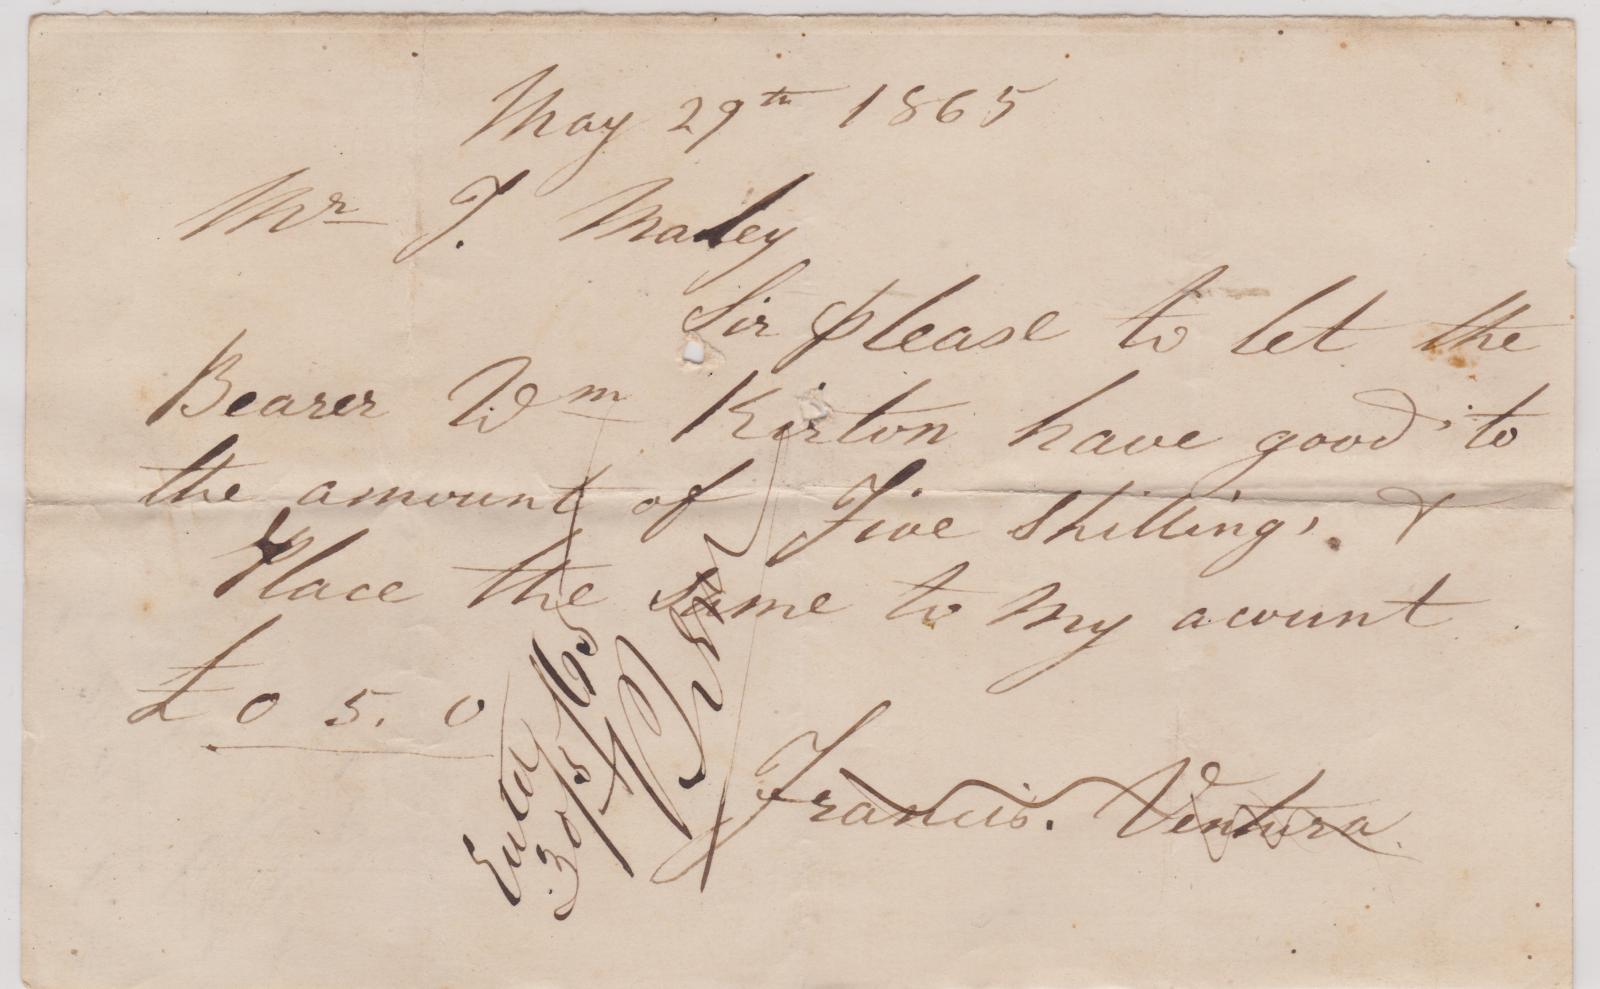 May 29th 1865
Mr J. Maley
Sir please to let the
Bearer Wm Kirton have good to
the amount of Five Shillings. &
Place the same to my acount
£0 5. 0
Francis. Ventura
Entd
30/5/65